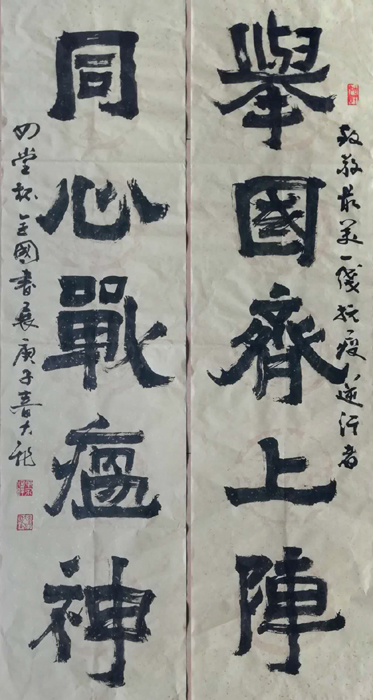 致敬最美一线抗疫逆行者
舉國齊上陣
同心戰瘟神
四堂杯全國書展庚子春大龍